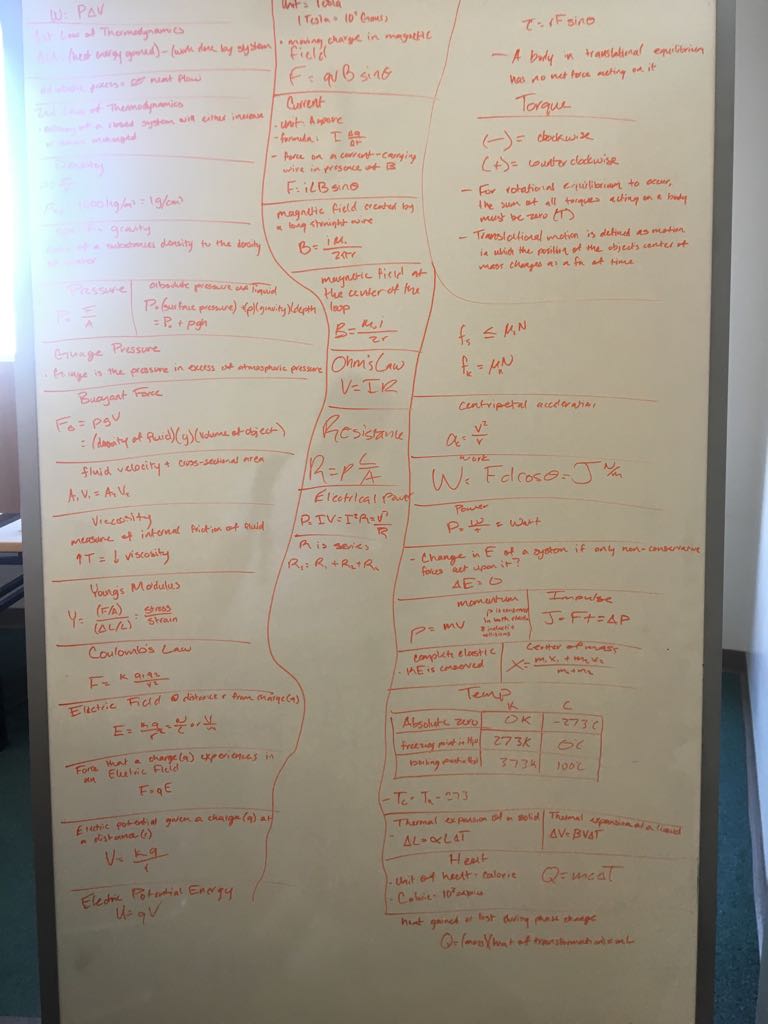 W = PΔV
1st Law of Thermodynamics
(heat energy gained) - (work done by system
process = heat flow
2nd Law of Thermodynamics
of a closed system will either increase
or unchanged
Density
1000kg/m³ = 1g/cm³
gravity
of a substances density to the density
of water
Pressure
P = F/A
absolute pressure and liquid
P = (surface pressure) + (ρ)(gravity)(depth
= P₀ + ρgh
Guage Pressure
· Guage is the pressure in excess of atmospheric pressure
Buoyant Force
F_B = ρgV
= (density of fluid)(g)(volume of object)
fluid velocity + cross-sectional area
A₁V₁ = A₂V₂
Viscosity
measure of internal friction of fluid
↑T = ↓ viscosity
Youngs Modulus
Y = (F/A)/(ΔL/L) = stress/strain
Coulomb's Law
F = k q₁q₂/r²
Electric Field @ distance r from charge(q)
E = kq/r² = N/C or V/m
Force that a charge(q) experiences in
an Electric Field
F = qE
Electric potential given a charge(q) at
a distance(r)
V = kq/r
Electric Potential Energy
U = qV
Unit = Tesla
1 Tesla = 10⁴ Gauss
· moving charge in magnetic
field
F = qvB sinθ
Current
- Unit: Ampere
- formula: I Δq/Δt
- Force on a current-carrying
wire in presence of B
F = iLB sinθ
magnetic field created by
a long straight wire
B = iμ₀/2πr
magnetic field at
the center of the
loop
B = μ₀i/2r
Ohm's Law
V = IR
Resistance
R = ρ L/A
Electrical Power
P = IV = I²R = V²/R
R is series
= R₁ + R₂ + Rₙ
τ = rF sinθ
- A body in translational equilibrium
has no net force acting on it
Torque
(-) = clockwise
(+) = counter clockwise
- For rotational equilibrium to occur,
the sum of all torques acting on a body
must be zero (T)
- Translational motion is defined as motion
in which the position of the objects center of
mass changes as a fn of time
fs ≤ μsN
fk = μkN
Centripetal acceleration
ac = v²/r
Work
W = Fd cosθ = J N/m
Power
P = W/t = Watt
- Change in E of a system if only non-conservative
forces act upon it?
ΔE = 0
momentum
p = mv
p is conserved
in both elastic
& inelastic
collisions
Impulse
J = Ft = Δp
complete elastic
· KE is conserved
Center of mass
X = m₁x₁ + m₂x₂/m₁+m₂
Temp
K C
Absolute zero 0K -273C
freezing point in H₂O 273K 0C
boiling point of H₂O 373K 100C
- Tc = Tk - 273
Thermal expansion of a solid
- ΔL = αLΔT
Thermal expansion of a liquid
ΔV = βVΔT
Heat
- Unit of heat = calorie
- Calorie = 10³ calories
Q = mcΔT
heat gained or lost during phase change
Q = (mass)(heat of transformation) = mL